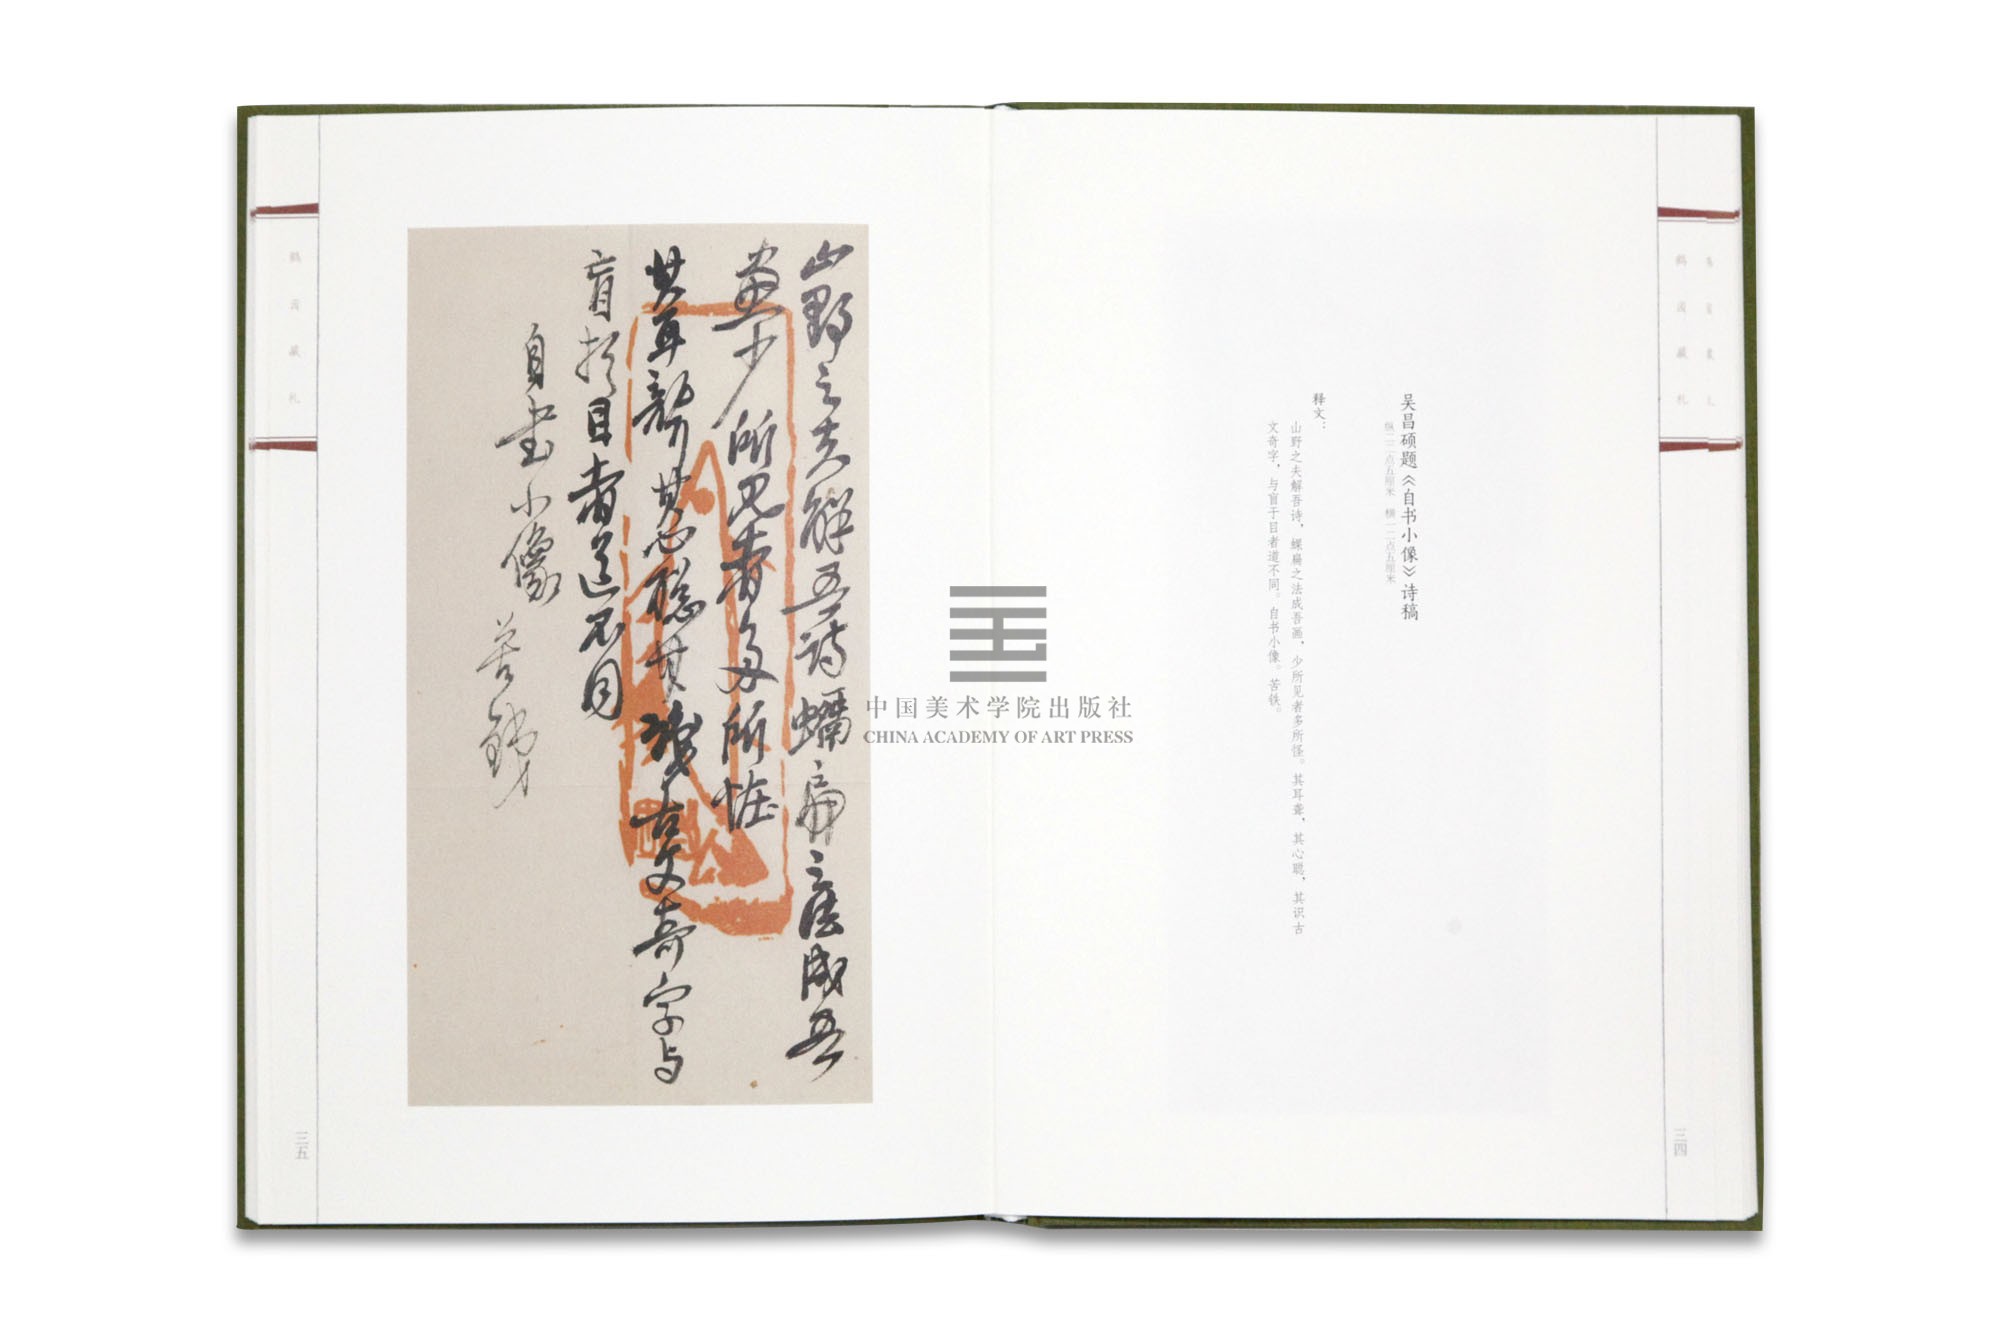 鹤园藏札
三四
吴昌硕题《自书小像》诗稿
纵二二点五厘米 横一二点五厘米
释文：
山野之夫解吾诗，蝶扁之法成吾画，少所见者多所怪。其耳聋，其心聪，其识古
文奇字，与盲于目者道不同。自书小像。苦铁。
山野之夫解吾詩蠣扁之法成吾
畫少所見者多所怪
其耳聾其心聪其識古文奇字与
盲於目者道不同
自書小像
苦鐵
鹤园藏札
三五
中国美术学院出版社
CHINA ACADEMY OF ART PRESS